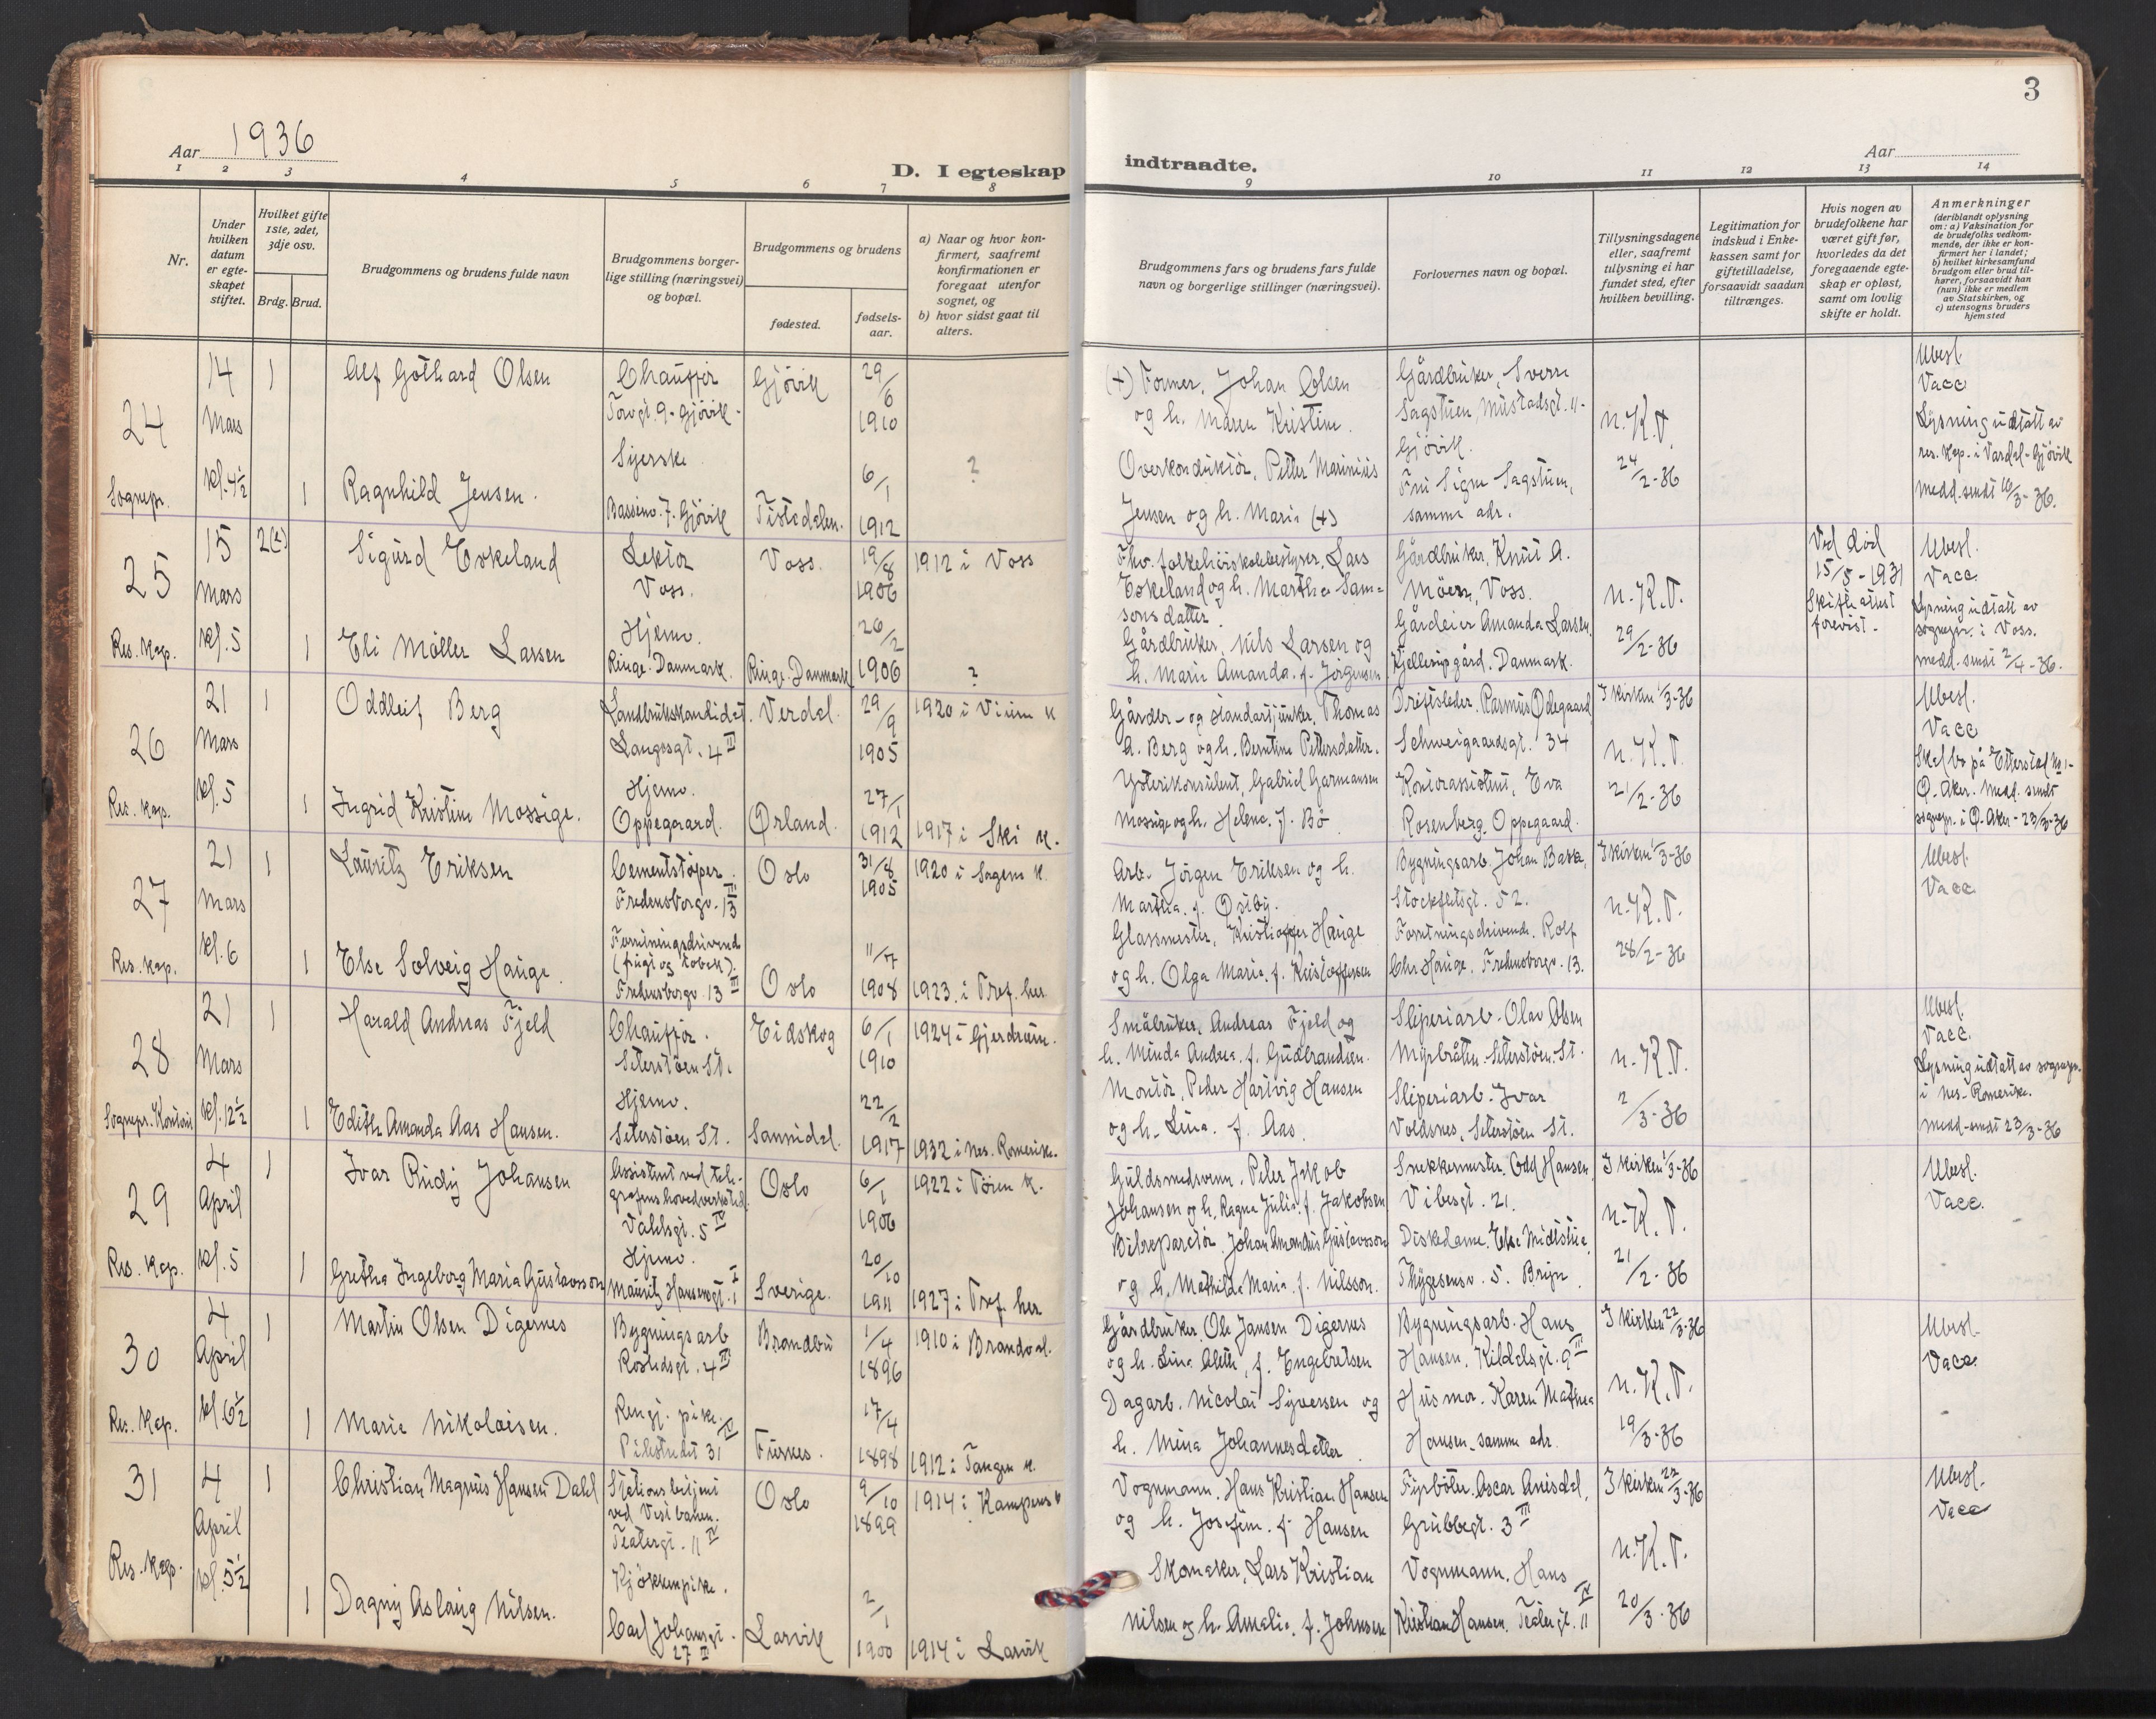 3
Aar 1936
D. I egteskap
indtraadte.
Aar
1 2 3 4 5 6 7 8 9 10 11 12 13 14
Nr.
Under
hvilken
datum
er egte-
skapet
stiftet.
Hvilket gifte
1ste, 2det,
3dje osv.
Brdg. Brud.
Brudgommens og brudens fulde navn
Brudgommens borger-
lige stilling (næringsvei)
og bopæl.
Brudgommens og brudens
fødested.
fødsels-
aar.
a) Naar og hvor kon-
firmert, saafremt
konfirmationen er
foregaat utenfor
sognet, og
b) hvor sidst gaat til
alters.
Brudgommens fars og brudens fars fulde
navn og borgerlige stillinger (næringsvei).
Forlovernes navn og bopæl.
Tillysningsdagene
eller, saafremt
tillysning ei har
fundet sted, efter
hvilken bevilling.
Legitimation for
indskud i Enke-
kassen samt for
giftetilladelse,
forsaavidt saadan
tiltrænges.
Hvis nogen av
brudefolkene har
været gift før,
hvorledes da det
foregaaende egte-
skap er opløst,
samt om lovlig
skifte er holdt.
Anmerkninger
(deriblandt oplysning
om: a) Vaksination for
de brudefolks vedkom-
mende, der ikke er kon-
firmert her i landet;
b) hvilket kirkesamfund
brudgom eller brud til-
hører, forsaavidt han
(hun) ikke er medlem
av Statskirken, og
c) utensogns bruders
hjemsted
24
Sognepr.
14
Mars
kl. 4½
1
Alf Gothard Olsen
Chauffør
Torvgt. 9. Gjøvik
Gjøvik
29/6
1910
1
Ragnhild Jensen.
Syerske
Bassenv. 7. Gjøvik
Tistedalen.
6/1
1912
?
(+) Former, Johan Olsen
og h. Maren Kristine.
Overkonduktør, Petter Marinius
Jensen og h. Marie (+)
Gårdbruker, Sverre
Sagstuen, Mustadsgt. 11-
Gjøvik.
Fru Signe Sagstuen,
samme adr.
n.K.T.
24/2-36
Ubesl.
Vacc
Lysning udtatt av
res. kap. i Vardal-Gjøvik
medd. sendt 16/3-36.
25
Res. kap.
15
Mars
kl. 5
2(2)
Sigurd Eskeland
Lektor
Voss.
Voss.
19/8
1906
1912 i Voss
1
Eli Möller Larsen
Hjemv.
Ringe. Danmark.
Ringe. Danmark
26/2
1906
?
Fhv. folkehøiskolebestyrer, Lars
Eskeland og h. Martha Sam-
sonsdatter.
Gårdbruker, Nils Larsen og
h. Marie Amanda. f. Jörgensen
Gårdbruker, Knut A.
Möen, Voss.
Gårdeier Amanda Larsen,
Kjellerupgård. Danmark.
n.K.T.
29/2-36
Ved død
15/5-1931
Skifteattest
forevist.
Ubesl.
Vacc.
Lysning udtatt av
sognepr. i Voss.
medd. sendt 2/4-36.
26
Res. kap.
21
Mars
kl. 5
1
Oddleif Berg
Landbrukskandidat.
Langesgt. 4 III
Verdal.
29/9
1905
1920 i Vinne K
1
Ingrid Kristine Mossige.
Hjemv.
Oppegaard.
Ørland.
27/1
1912
1917 i Ski K.
Gårdbr- og standartjunker, Thomas
A. Berg og h. Berntine Pettersdatter.
Ysterikonsulent, Gabriel Garmansen
Mossige og h. Helene. f. Bö
Driftsleder, Rasmus Ödegaard
Schweigaardsgt. 34
Kontorassistent, Eva
Rosenberg, Oppegaard.
I kirken 1/3-36
n.K.T.
21/2-36
Ubesl.
Vacc
Skal bo på Etterstad
Ø. Aker. Medd. sendt
sognepr. i Ø. Aker - 23/3-36
27
Res. kap.
21
Mars
kl. 6
1
Lauritz Eriksen
Cementstöper.
Fredensborgv. 13 III
Oslo
31/8
1905
1920 i Sagene K.
1
Else Solveig Hauge.
Forretningsdrivende
(frugt og tobak).
Fredensborgv. 13 III
Oslo
11/7
1908
1923. i Tref. her
Arb. Jörgen Eriksen og h.
Martha. f. Östby.
Glassmester, Kristoffer Hauge
og h. Olga Marie. f. Kristoffersen
Bygningsarb. Johan Bakke,
Stockfletsgt. 52.
Forretningsdrivende. Rolf
Chr. Hauge, Fredensborgv. 13.
I kirken 1/3-36
n.K.T.
28/2-36
Ubesl.
Vacc.
28
Sognepr. Kontor
21
Mars
kl. 12½
1
Harald Andreas Fjeld
Chauffør.
Seterstöen St.
Eidskog
6/1
1910
1924 i Gjerdrum.
1
Edith Amanda Aas Hansen.
Hjemv.
Seterstöen St.
Sannidal.
22/2
1917
1932 i Nes. Romerike.
Småbruker, Andreas Fjeld og
h. Minda Andrea. f. Gudbrandsen.
Montør, Peder Hartvig Hansen
og h. Lina. f. Aas.
Sliperiarb. Olav Olsen
Myrbråten. Seterstöen. St.
Sliperiarb. Ivar
Voldsnes, Seterstöen St.
n.K.T.
2/3-36
Ubesl.
Vacc.
Lysning udtatt av sognepr.
i Nes-Romerike.
medd. sendt 23/3-36
29
Res. kap.
4
April
kl. 5
1
Ivar Rudij Johansen
Assistent ved tele-
grafens hovedverksted.
Valdsgt. 5 IV
Oslo
6/1
1906
1922 i Töien K.
1
Gretha Ingeborg Maria Gustavsson
Hjemv.
Mauritz Hansensgt. 1 I
Sverige.
20/10
1911
1927 i Tref. her
Guldsmedsvenn. Peter Jakob
Johansen og h. Ragna Julie. f. Jakobsen
Bilreparatör. Johan Amandus Gustavsson
og h. Mathilda Maria. f. Nilsson.
Snekkermester, Odd Hansen,
Vibesgt. 21.
Diskedame. Else Midtstue,
Thygesensv. 5. Bryn.
I kirken 1/3-36
n.K.T.
21/2-36
Ubesl.
Vacc.
30
Res. kap.
4
April
kl. 6½
1
Martin Olsen Digernes
Bygningsarb
Rostedsgt. 4 III
Brandbu
1/4
1896
1910 i Brandval.
1
Marie Nikolaisen.
Rengj. pike.
Pilestredet 31 IV
Furnes.
17/4
1898
1912 i Tangen K.
Gårdbruker, Ole Jansen Digernes
og h. Lina Alette, f. Engebretsen
Dagarb. Nicolai Syversen og
h. Mina Johannesdatter
Bygningsarb. Hans
Hansen, Kildalsgt. 9 III
Husmor. Karen Mathea
Hansen, samme adr.
I kirken 22/3-36
n.K.T.
19/3-36
Ubesl.
Vacc.
31
Res. kap.
4
April
kl. 5½
1
Christian Magnus Hansen Dahl
Stationsbetjent
ved Vestbanen.
Teatergt. 11 IV
Oslo
9/10
1899
1914 i Kampens K
1
Dagny Aslaug Nilsen.
Kjökkenpike.
Carl Johansgt.
27 II
Larvik
2/1
1900
1914 i Larvik
Vognmann. Hans Kristian Hansen
og h. Josefine. f. Hansen
Skomaker, Lars Kristian
Nilsen og h. Amalie. f. Johnsen
Fyrböter. Oscar Anisdal,
Grubbegt. 3 III
Vognmann. Hans
Kristian Hansen, Teatergt. 11 IV
I kirken 22/3-36
n.K.T.
20/3-36
Ubesl.
Vacc